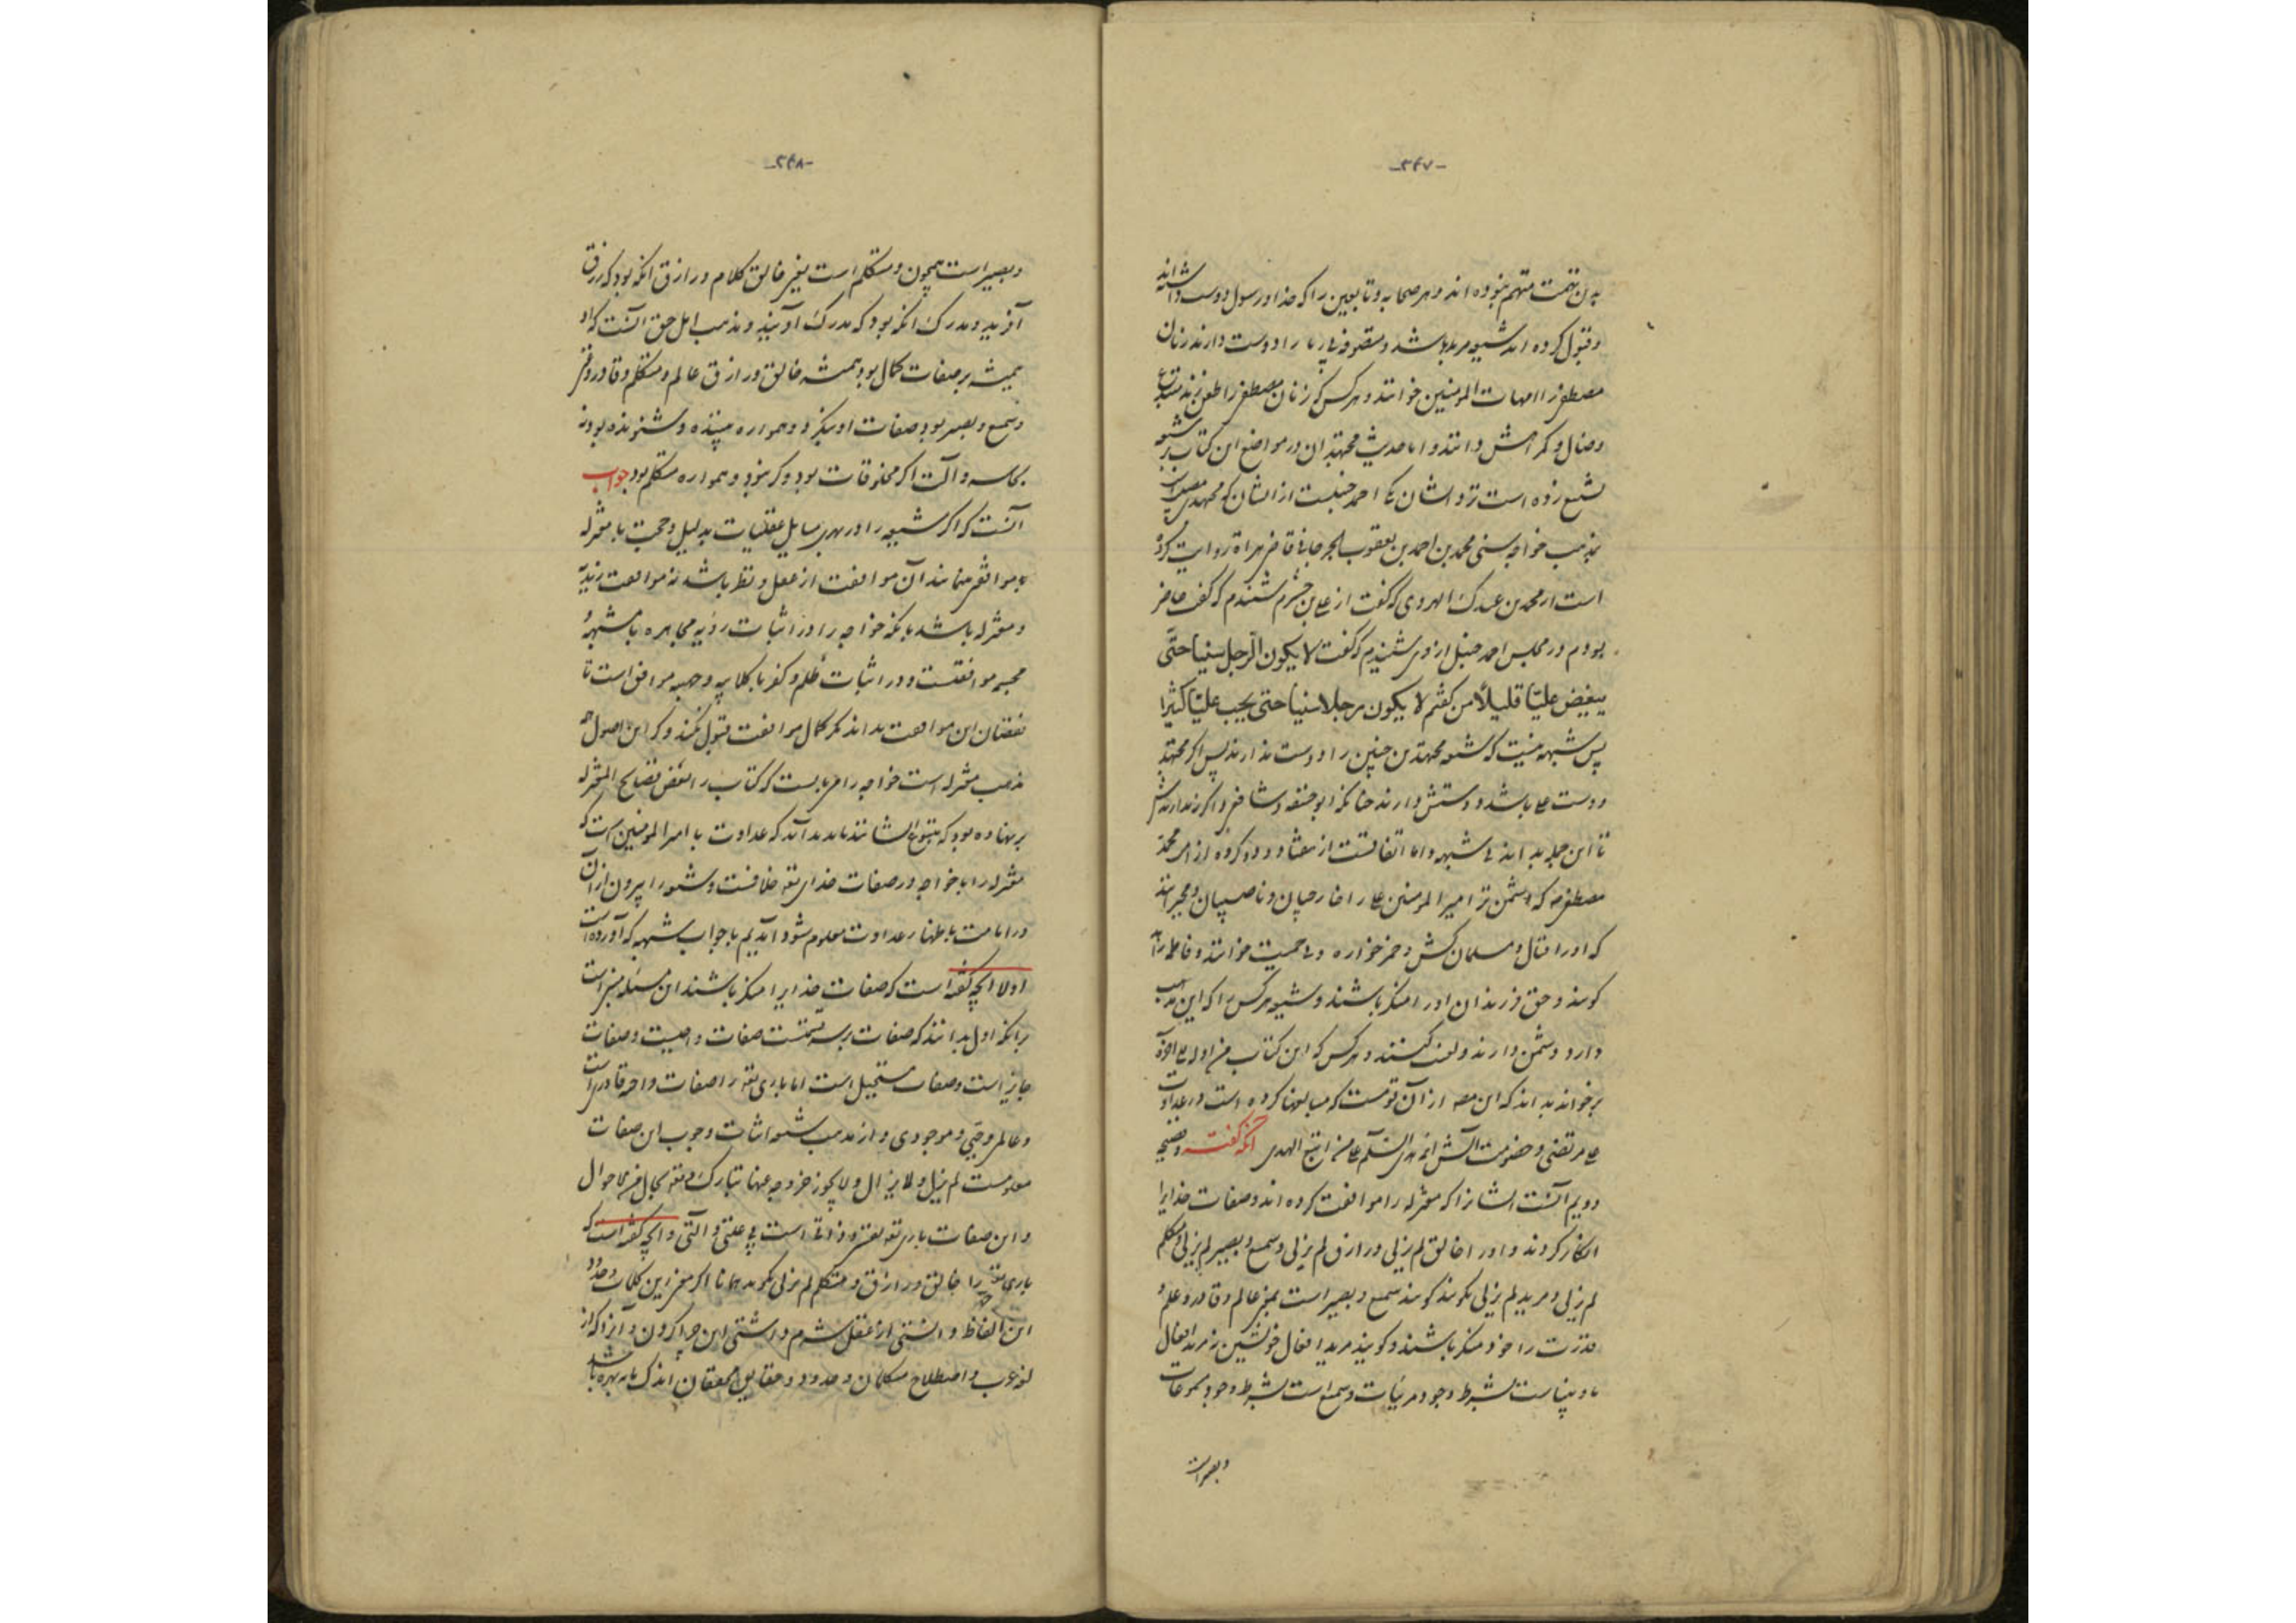 -۳۴۷-
بدین تهمت متهم نبوده اند و هر صحابه و تابعین را که خدا و رسول دوست داشته اند
و قبول کرده اند شیعه مرید باشد و متصرف پارسا را دوست دارند زنان
مصطفی را امهات المومنین خوانند و هر کس که زنان مصطفی را طعن زند مبتدع
و ضال و گمراهش دانند و اما حدیث مجتهدان در مواضع این کتاب بر شیعه
تشنیع زده است نزد ایشان یکی احمد حنبلست از ایشان که مجتهدی مصیب است
بمذهب خواجه سنی محمد بن احمد بن یعقوب الجرجانی قاضی هراة روایت کرد
است از محمد بن عبدک الهروی که گفت از علی بن خشرم شنیدم که گفت حاضر
بودم در مجلس احمد حنبل از وی شنیدم که گفت لا یکون الرجل سنیا حتی
یبغض علیا قلیلا من کفتم لا یکون رجلا سنیا حتی یحب علیا کثیرا
پس شبهه نیست که شیعه مجتهد بن چنین را دوست ندارند پس اگر مجتهد
دوست علی باشد دوستش دارند چنانکه ابو حنیفه و شافعی و اگر نه ندارندش
تا این جمله بداند بی شبهه و اما اتفاقست از هفتاد و دو گروه از امت محمد
مصطفی که دشمن تر امیر المومنین علی را خارجیان و ناصبیان و مجبرانند
که او را قتال و مسلمان کش و خمر خواره و بی حمیت خوانند و فاطمه را
گویند و حق فرزندان او را منکر باشند و شیعه هر کس را که این مذهب
دارد دشمن دارند و لعنت کنند و هر کس که این کتاب من اوله الی آخره
برخواند بداند که این مصنف از آن قومست که مبالغتها کرده است در عداوت
علی مرتضی و خصومت آلش ائمه هدی السلام علی من اتبع الهدی آنکه گفته و فضیحة
دویم آنست ایشانرا که معتزله را موافقت کرده اند و صفات خدایرا
انکار کردند و او را خالق لم یزلی و رازق لم یزلی و سمیع و بصیر لم یزلی و متکلم
لم یزلی و مرید لم یزلی نگویند گویند سمیع و بصیر است بمعنی عالم و قادر و علم و
قدرت را خود منکر باشند و گویند مرید افعال خویشتن نه مرید افعال
ما و بیناست بشرط وجود مرئیات و سمیع است بشرط وجود مسموعات
و بصیر است
-۳۴۸-
و بصیر است همچون و متکلم است یعنی خالق کلام و رازق آنکه بود که رزق
آفرید و مدرک آنکه بود که مدرک آفریند و مذهب اهل حق آنست که او
همیشه بر صفات کمال بود همیشه خالق و رازق و عالم و متکلم و قادر و
و سمیع و بصیر بود صفات او بنگردد و همواره بیننده و شنونده بود نه
بحاسه و آلت اگر مخلوقات بود و گر نبود و همواره متکلم بود جواب
آنست که اگر شیعه را در بهری مسایل عقلیات بدلیل و حجت با معتزله
موافقتی نمایند آن موافقت از عقل و نظر باشد نه موافقت زیدیه
و معتزله باشد بلکه خواجه را در اثبات رؤیه مجاهره با مشبهه و
مجسمه موافقتست و در اثبات ظلم و کفر با کلابیه و جهمیه موافق است تا
نقصان این موافقت بداند مگر کمال موافقت قبول نکند و گر این اصول
مذهب معتزله است خواجه را می بایست که کتاب را نقض فضایح المعتزله
برنهاده بود که متبوع ایشانند تا بدید آمد که عداوت با امیر المومنین است که
معتزله را با خواجه در صفات خدای تعه خلافست و شیعه را بیرون از آن
در امامت باظهار عداوت معلوم شود آمدیم با جواب شبهه که آورده است
اولا آنچه گفته است که صفات خدایرا منکر باشند این مسئله مبنی است
برانکه اول بدانند که صفات بر سه قسمتست صفات واجبیت و صفات
جایز است و صفات مستحیل است اما باری تعه را صفات واجبه قادری است
و عالمی و حیی و موجودی و از مذهب شیعه اثبات وجوب این صفات
معلومست لم یزل و لا یزال و لا یجوز خروجه عنها تبارک و تعه بحال من الاحوال
و این صفات باری تعه مقتضی و ذاتی است بی علتی و آلتی و آنچه گفته است که
باری تعه را خالق و رازق و متکلم لم یزلی نگویند همانا اگر معنی این کلمات و حدود
این الفاظ دانستی از عقل شرم داشتی این اجرا کردن و آنرا که از
لغة عرب و اصطلاح متکلمان و حدود و حقایق محققان اندک مایه بهره باشد